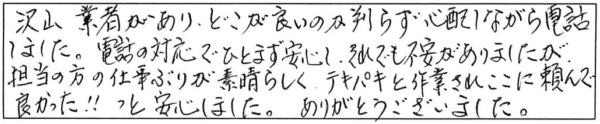 沢山 業者があり、どこが良いのか判らず心配しながら電話
しました。電話の対応でひとまず安心し、それでも不安がありましたが
担当の方の仕事ぶりが素晴らしく テキパキと作業されここに頼んで
良かった!! っと安心しました。 ありがとうございました。